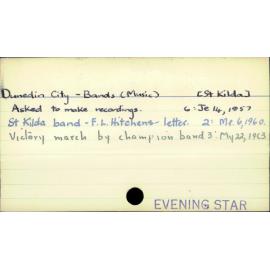 Dunedin City - Bands (Music) [St Kilda]
Asked to make recordings. 6: Je 14, 1957
St Kilda band - F. L. Hitchens letter. 2: Mr. 6, 1960.
Victory march by champion band 3: My 22, 1963
EVENING STAR